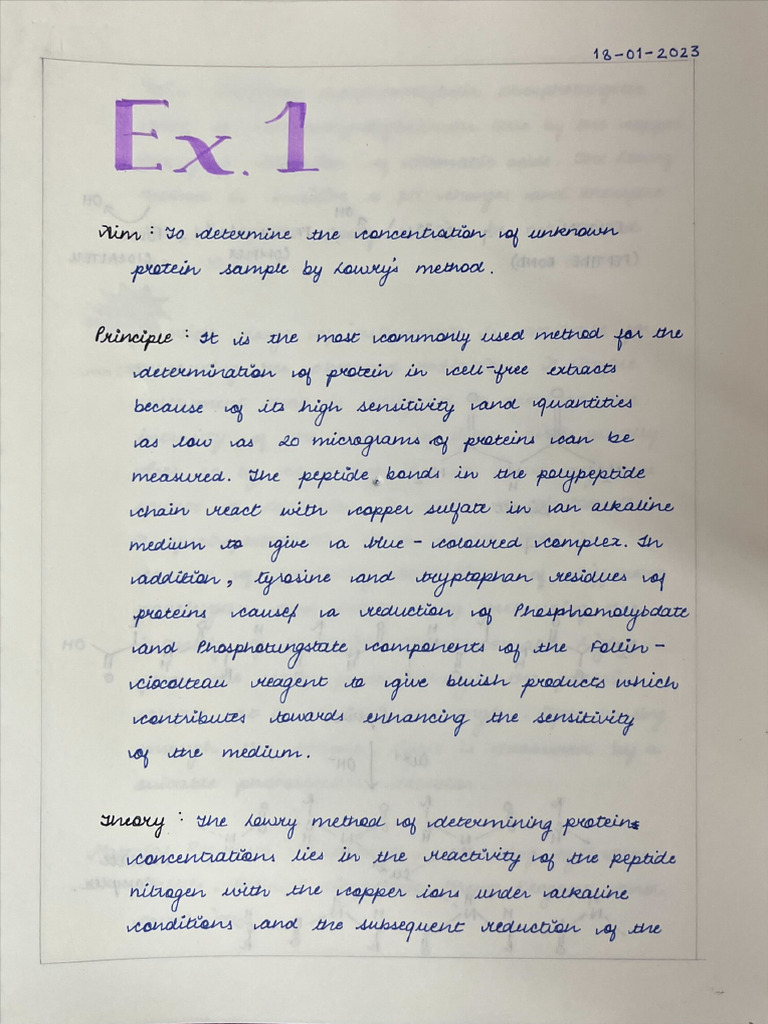 18-01-2023
Ex. 1
Aim : To determine the concentration of unknown
protein sample by Lowry's method.
Principle : It is the most commonly used method for the
determination of protein in cell-free extracts
because of its high sensitivity and quantities
as low as 20 micrograms of proteins can be
measured. The peptide bonds in the polypeptide
chain react with copper sulfate in an alkaline
medium to give a blue - coloured complex. In
addition, tyrosine and tryptophan residues of
proteins cause a reduction of Phosphomolybdate
and Phosphotungstate components of the Follin -
ciocolteau reagent to give bluish products which
contributes towards enhancing the sensitivity
of the medium.
Theory : The Lowry method of determining protein
concentrations lies in the reactivity of the peptide
nitrogen with the copper ions under alkaline
conditions and the subsequent reduction of the